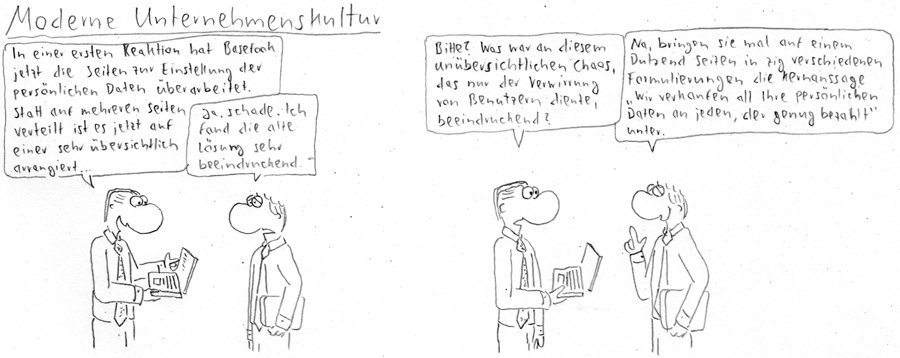 Moderne Unternehmenskultur
In einer ersten Reaktion hat Basefook
jetzt die Seiten zur Einstellung der
persönlichen Daten überarbeitet.
Statt auf mehreren Seiten
verteilt ist es jetzt auf
einer sehr übersichtlich
arrangiert...
Ja, schade. Ich
fand die alte
Lösung sehr
beeindruckend.
Bitte? Was war an diesem
unübersichtlichen Chaos,
das nur der Verwirrung
von Benutzern diente,
beeindruckend?
Na, bringen sie mal auf einem
Dutzend Seiten in zig verschiedenen
Formulierungen die Kernaussage
„Wir verkaufen all Ihre persönlichen
Daten an jeden, der genug bezahlt"
unter.